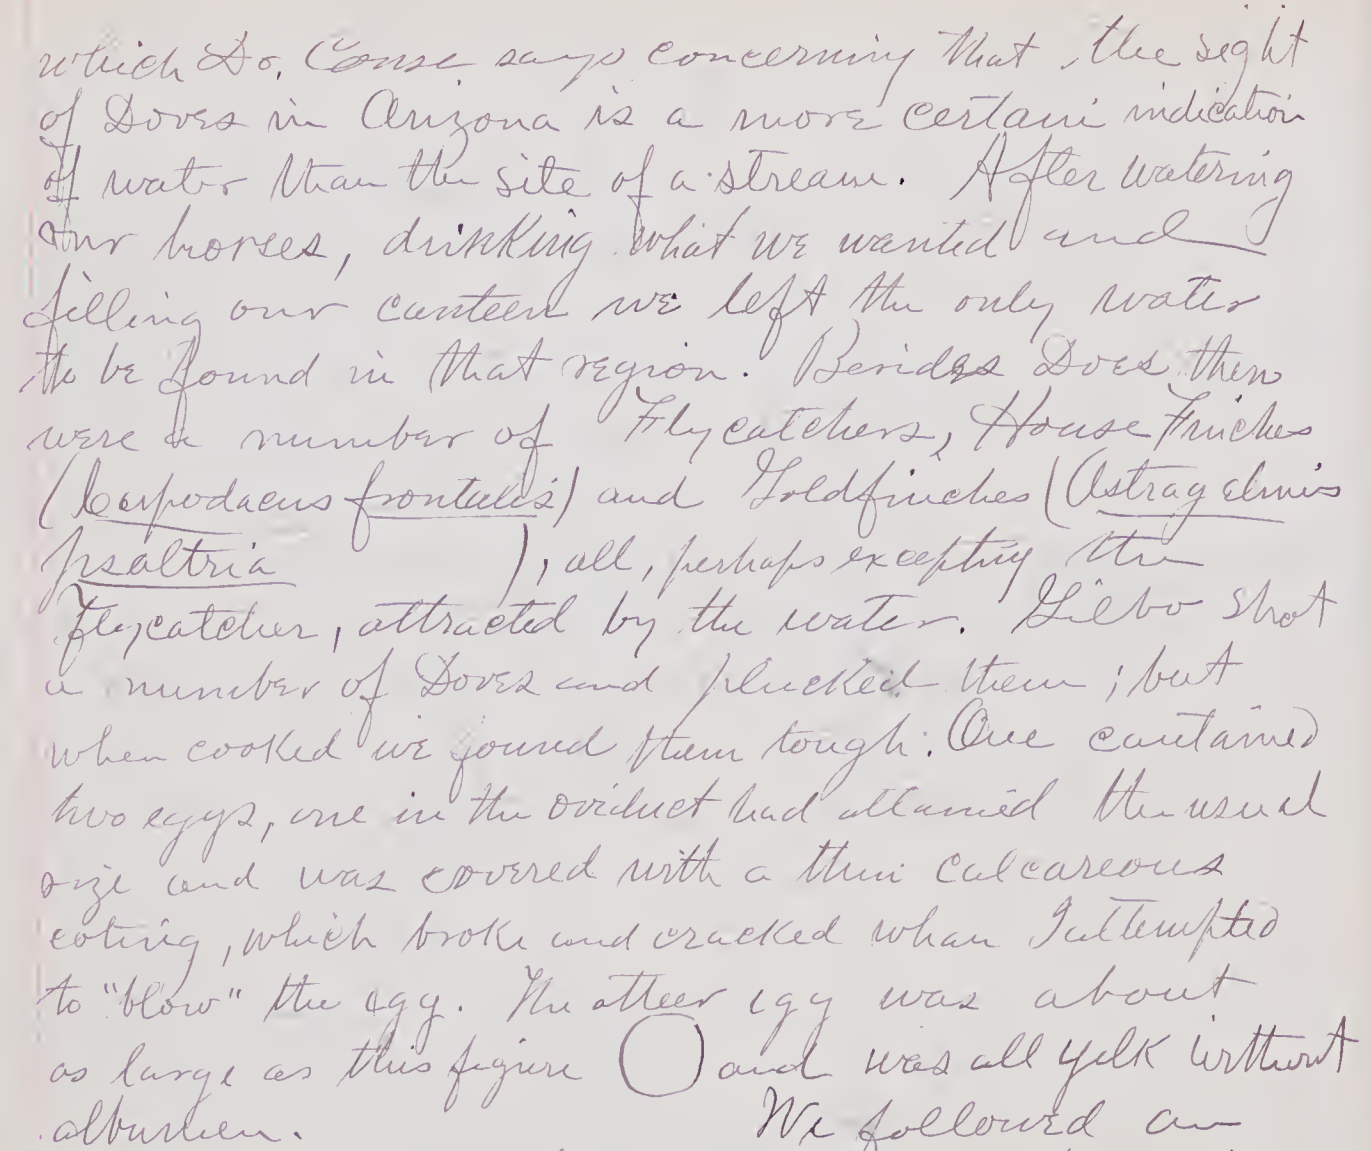 which Dr. Couse says concerning that, the sight
of Doves in Arizona is a more certain indication
of water than the site of a stream. After watering
our horses, drinking what we wanted and
filling our canteen we left the only water
to be found in that region. Besides Does then
were a number of Flycatchers, House Finches
(Carpodacus frontalis) and Goldfinches (Astragalinus
psaltria ), all, perhaps excepting the
Flycatcher, attracted by the water. Gilbo shot
a number of Doves and plucked them; but
when cooked we found them tough. One contained
two eggs, one in the oviduct had attained the usual
size and was covered with a thin calcareous
coting, which broke and cracked when I attempted
to "blow" the egg. The other egg was about
as large as this figure and was all yolk without
albumen. We followed an